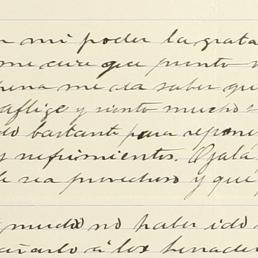 n mi poder la grata
me dice que pronto
pena me da saber que
aflige y siento mucho
do bastante para repone
s sufrimientos. Ojalá
le sea provechoso y qué
mucho no haber ido
añarlo á los